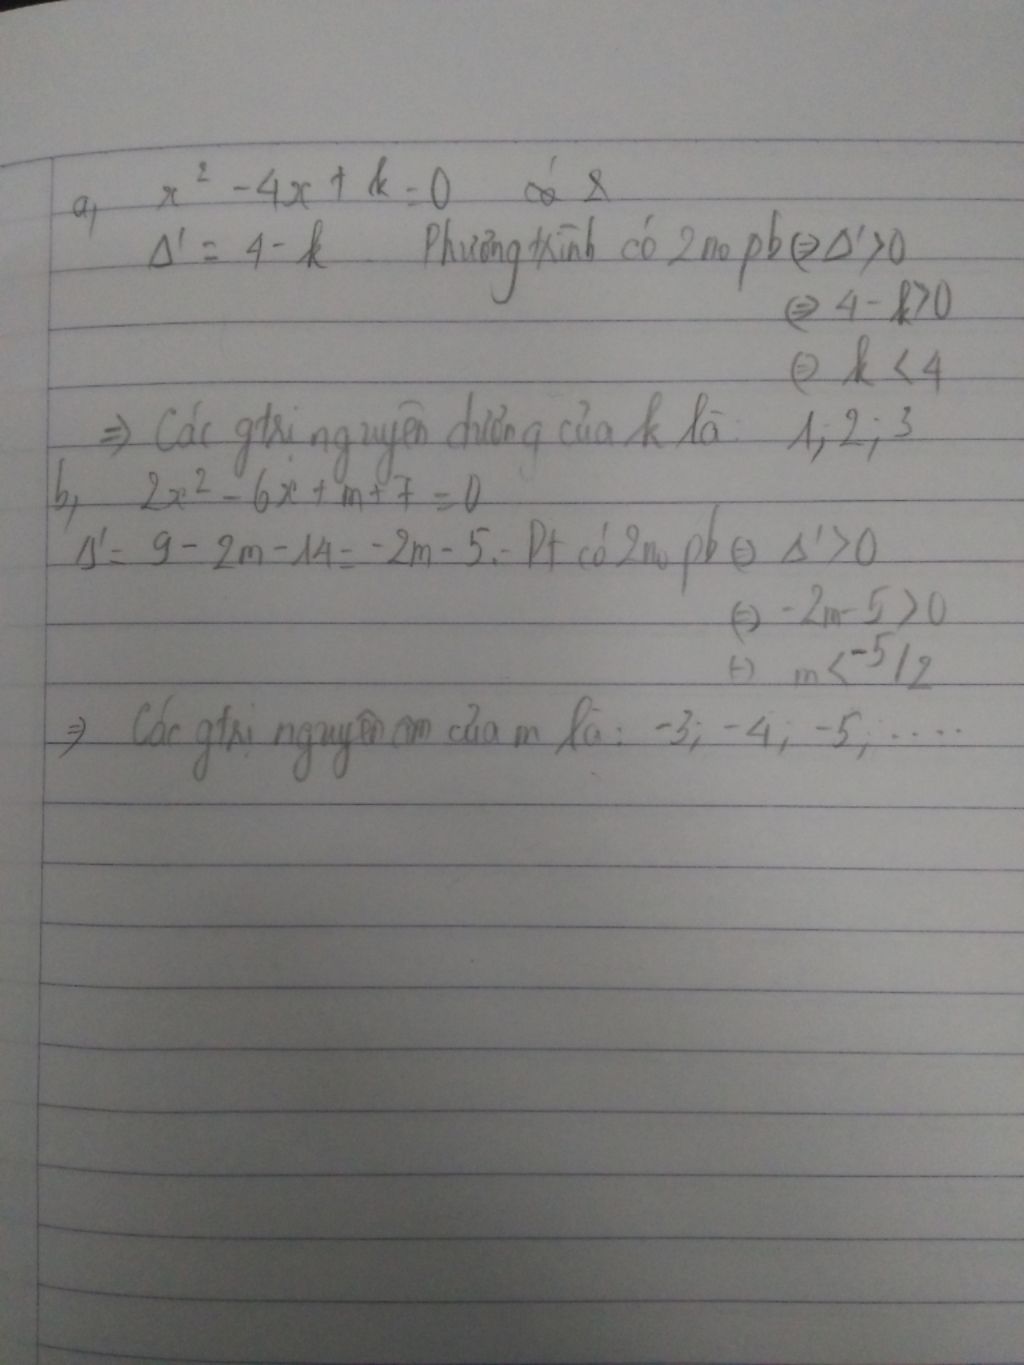 a, x² - 4x + k = 0 có 2
Δ' = 4 - k Phương trình có 2 no pb ⇔ Δ' > 0
⇔ 4 - k > 0
⇔ k < 4
⇒ Các gtrị nguyên dương của k là: 1; 2; 3
b, 2x² - 6x + m + 7 = 0
Δ' = 9 - 2m - 14 = -2m - 5. - Pt có 2 no pb ⇔ Δ' > 0
⇔ -2m - 5 > 0
⇔ m < -5/2
⇒ Các gtrị nguyên âm của m là: -3; -4; -5; .....